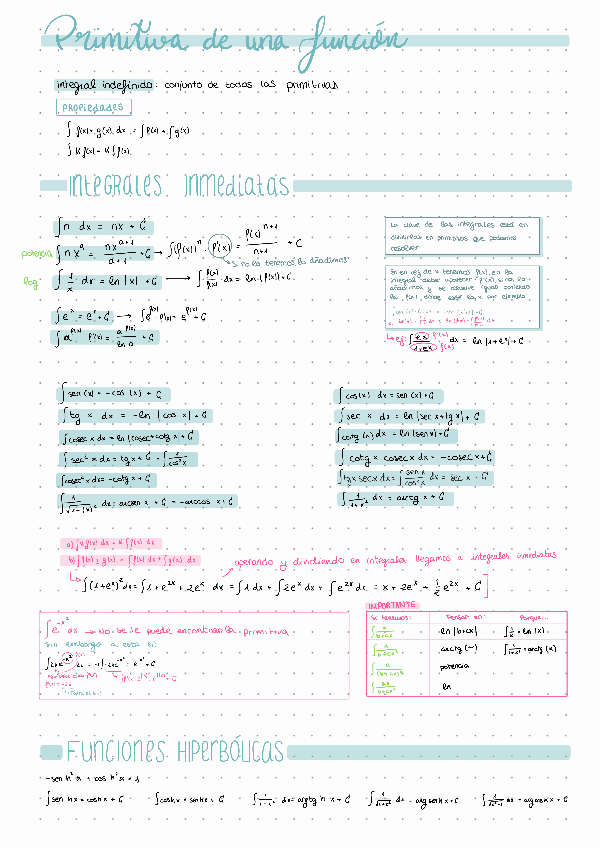 Primitiva de una función
integral indefinida: conjunto de todas las primitivas
PROPIEDADES
∫ f(x) + g(x) dx = ∫ f(x) + ∫ g(x)
∫ K f(x) = K ∫ f(x)
INTEGRALES INMEDIATAS
∫ n dx = nx + C
potencia ∫ n x^a = nx^(a+1)/(a+1) + C → ∫ (f(x))^n · f'(x) = f(x)^(n+1)/(n+1) + C
Si no la tenemos, la añadimos.
log: ∫ 1/x dx = ln |x| + C → ∫ f'(x)/f(x) dx = ln |f(x)| + C
∫ e^x = e^x + C → ∫ e^f(x) f'(x) = e^f(x) + C
∫ a^f(x) · f'(x) = a^f(x)/ln a + C
La clave de las integrales está en
dividirlas en primitivas que podamos
resolver
Si en vez de x tenemos f(x), en la
integral debe aparecer f'(x), si no, la
añadimos y se resuelve igual poniendo
la f(x) donde esté la x, por ejemplo:
ej: ∫ e^x/(1+e^x) dx = ln |1+e^x| + C
f'(x)
f(x)
∫ sen (x) = -cos (x) + C
∫ tg x dx = -ln | cos x| + C
∫ cosec x dx = ln |cosec x - cotg x| + C
∫ sec² x dx = tg x + C = ∫ 1/cos²x
∫ cosec² x dx = -cotg x + C
∫ 1/√(1-(x)²) dx = arcsen x + C = -arccos x + C
∫ cos(x) dx = sen (x) + C
∫ sec x dx = ln |sec x + tg x| + C
∫ cotg (x) dx = ln |sen x| + C
∫ cotg x cosec x dx = -cosec x + C
∫ tg x sec x dx = ∫ sen x/cos²x dx = sec x + C
∫ 1/(1+x²) dx = arctg x + C
a) ∫ K f(x) dx = K ∫ f(x) dx
b) ∫ f(x) ± g(x) = ∫ f(x) dx ± ∫ g(x) dx
operando y dividiendo en integrales llegamos a integrales inmediatas
∫ (1+e^x)² dx = ∫ 1 + e^2x + 2e^x dx = ∫ 1 dx + ∫ 2e^x dx + ∫ e^2x dx = x + 2e^x + 1/2 e^2x + C
∫ e^-x² dx → no se puede encontrar la primitiva.
Sin embargo a esta sí:
IMPORTANTE
Si tenemos: Pensar en: Porque...
∫ a/(b+cx) ln |b+cx| ∫ 1/x = ln (x)
∫ a/(b+cx²) arctg (~) ∫ 1/(1+x²) = arctg (x)
∫ a/(b+cx)² potencia
ln
FUNCIONES HIPERBÓLICAS
-sen h² x + cos h² x = 1
∫ sen h x = cosh x + C
∫ cosh x = senh x + C